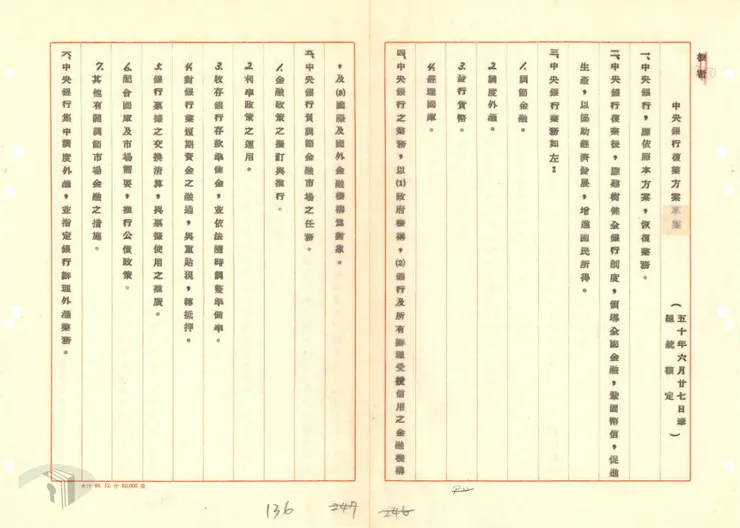 機密
中央銀行復業方案草案
（五十年六月廿七日奉
總統核定）
一、中央銀行，應依照本方案，恢復業務。
二、中央銀行復業後，應建樹健全銀行制度，領導全國金融，鞏固幣信，促進
生產，以協助經濟發展，增進國民所得。
三、中央銀行業務如左：
1.調節金融。
2.調度外匯。
3.發行貨幣。
4.經理國庫。
四、中央銀行之業務，以(1)政府機構，(2)銀行及所有辦理受授信用之金融機構
，及(3)國際及國外金融機構為對象。
五、中央銀行負調節金融市場之任務。
1.金融政策之擬訂與推行。
2.利率政策之運用。
3.收存銀行存款準備金，並依法隨時調整準備率。
4.對銀行業短期資金之融通，與重貼現，轉抵押。
5.銀行票據之交換清算，與票據使用之推廣。
6.配合國庫及市場需要，推行公債政策。
7.其他有關調節市場金融之措施。
六、中央銀行集中調度外匯，並指定銀行辦理外匯業務。
136
247
246